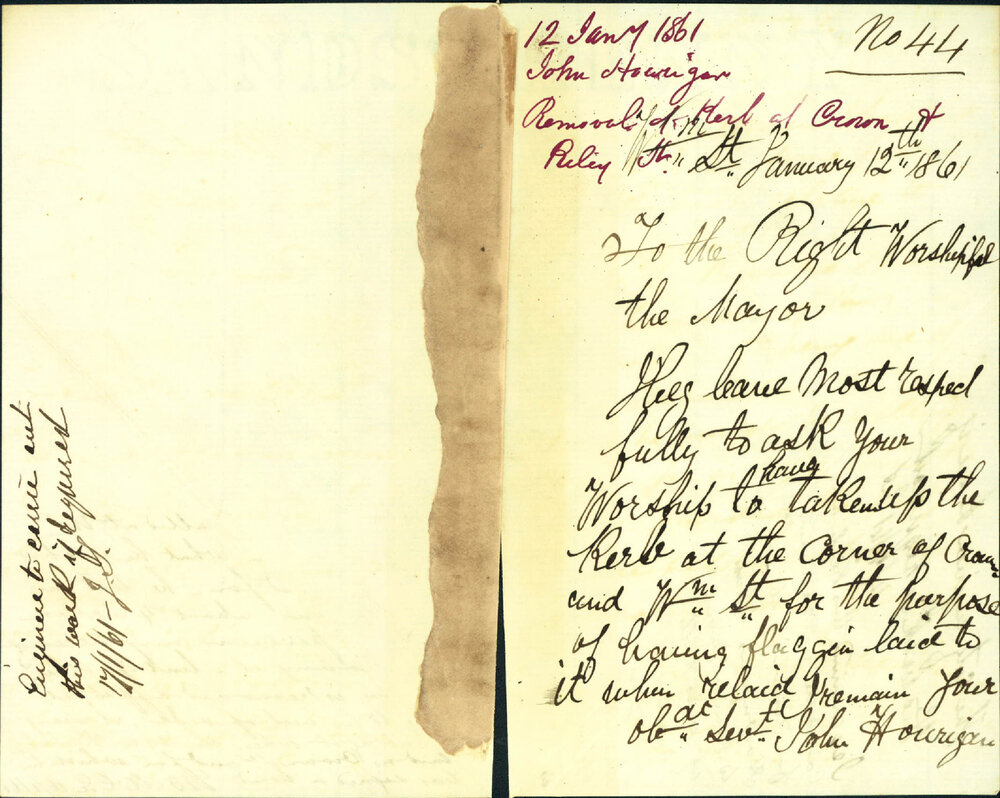 Enginer to carrie out
this work if required
17/1/61
12 Jany 1861
No 44
John Hourigan
Removal of Kerb at Crown &
Riley St.
Wm St January 12th 1861
To the Right Worshipful
the Mayor
I beg leave Most respect
fully to ask Your
Worship to have taken up the
Kerb at the Corner of Crown
and Wm St for the purpose
of having flaggin laid to
it when relaid I remain Your
obat Servt John Hourigan